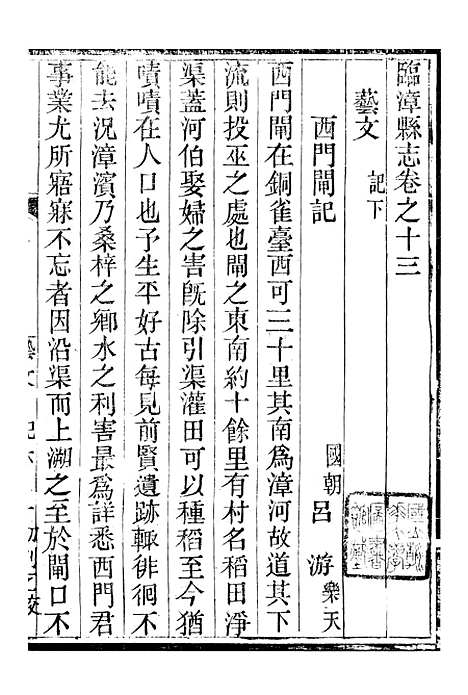 臨漳縣志卷之十三
藝文 記下
西門閘記 國朝 呂 游 樂天
西門閘在銅雀臺西可三十里其南為漳河故道其下
流則投巫之處也閘之東南約十餘里有村名稻田淨
渠蓋河伯娶婦之害旣除引渠灌田可以種稻至今猶
嘖嘖在人口也予生平好古每見前賢遺跡輙徘徊不
能去況漳濱乃桑梓之鄉水之利害最為詳悉西門君
事業尤所寤寐不忘者因沿渠而上溯之至於閘口不